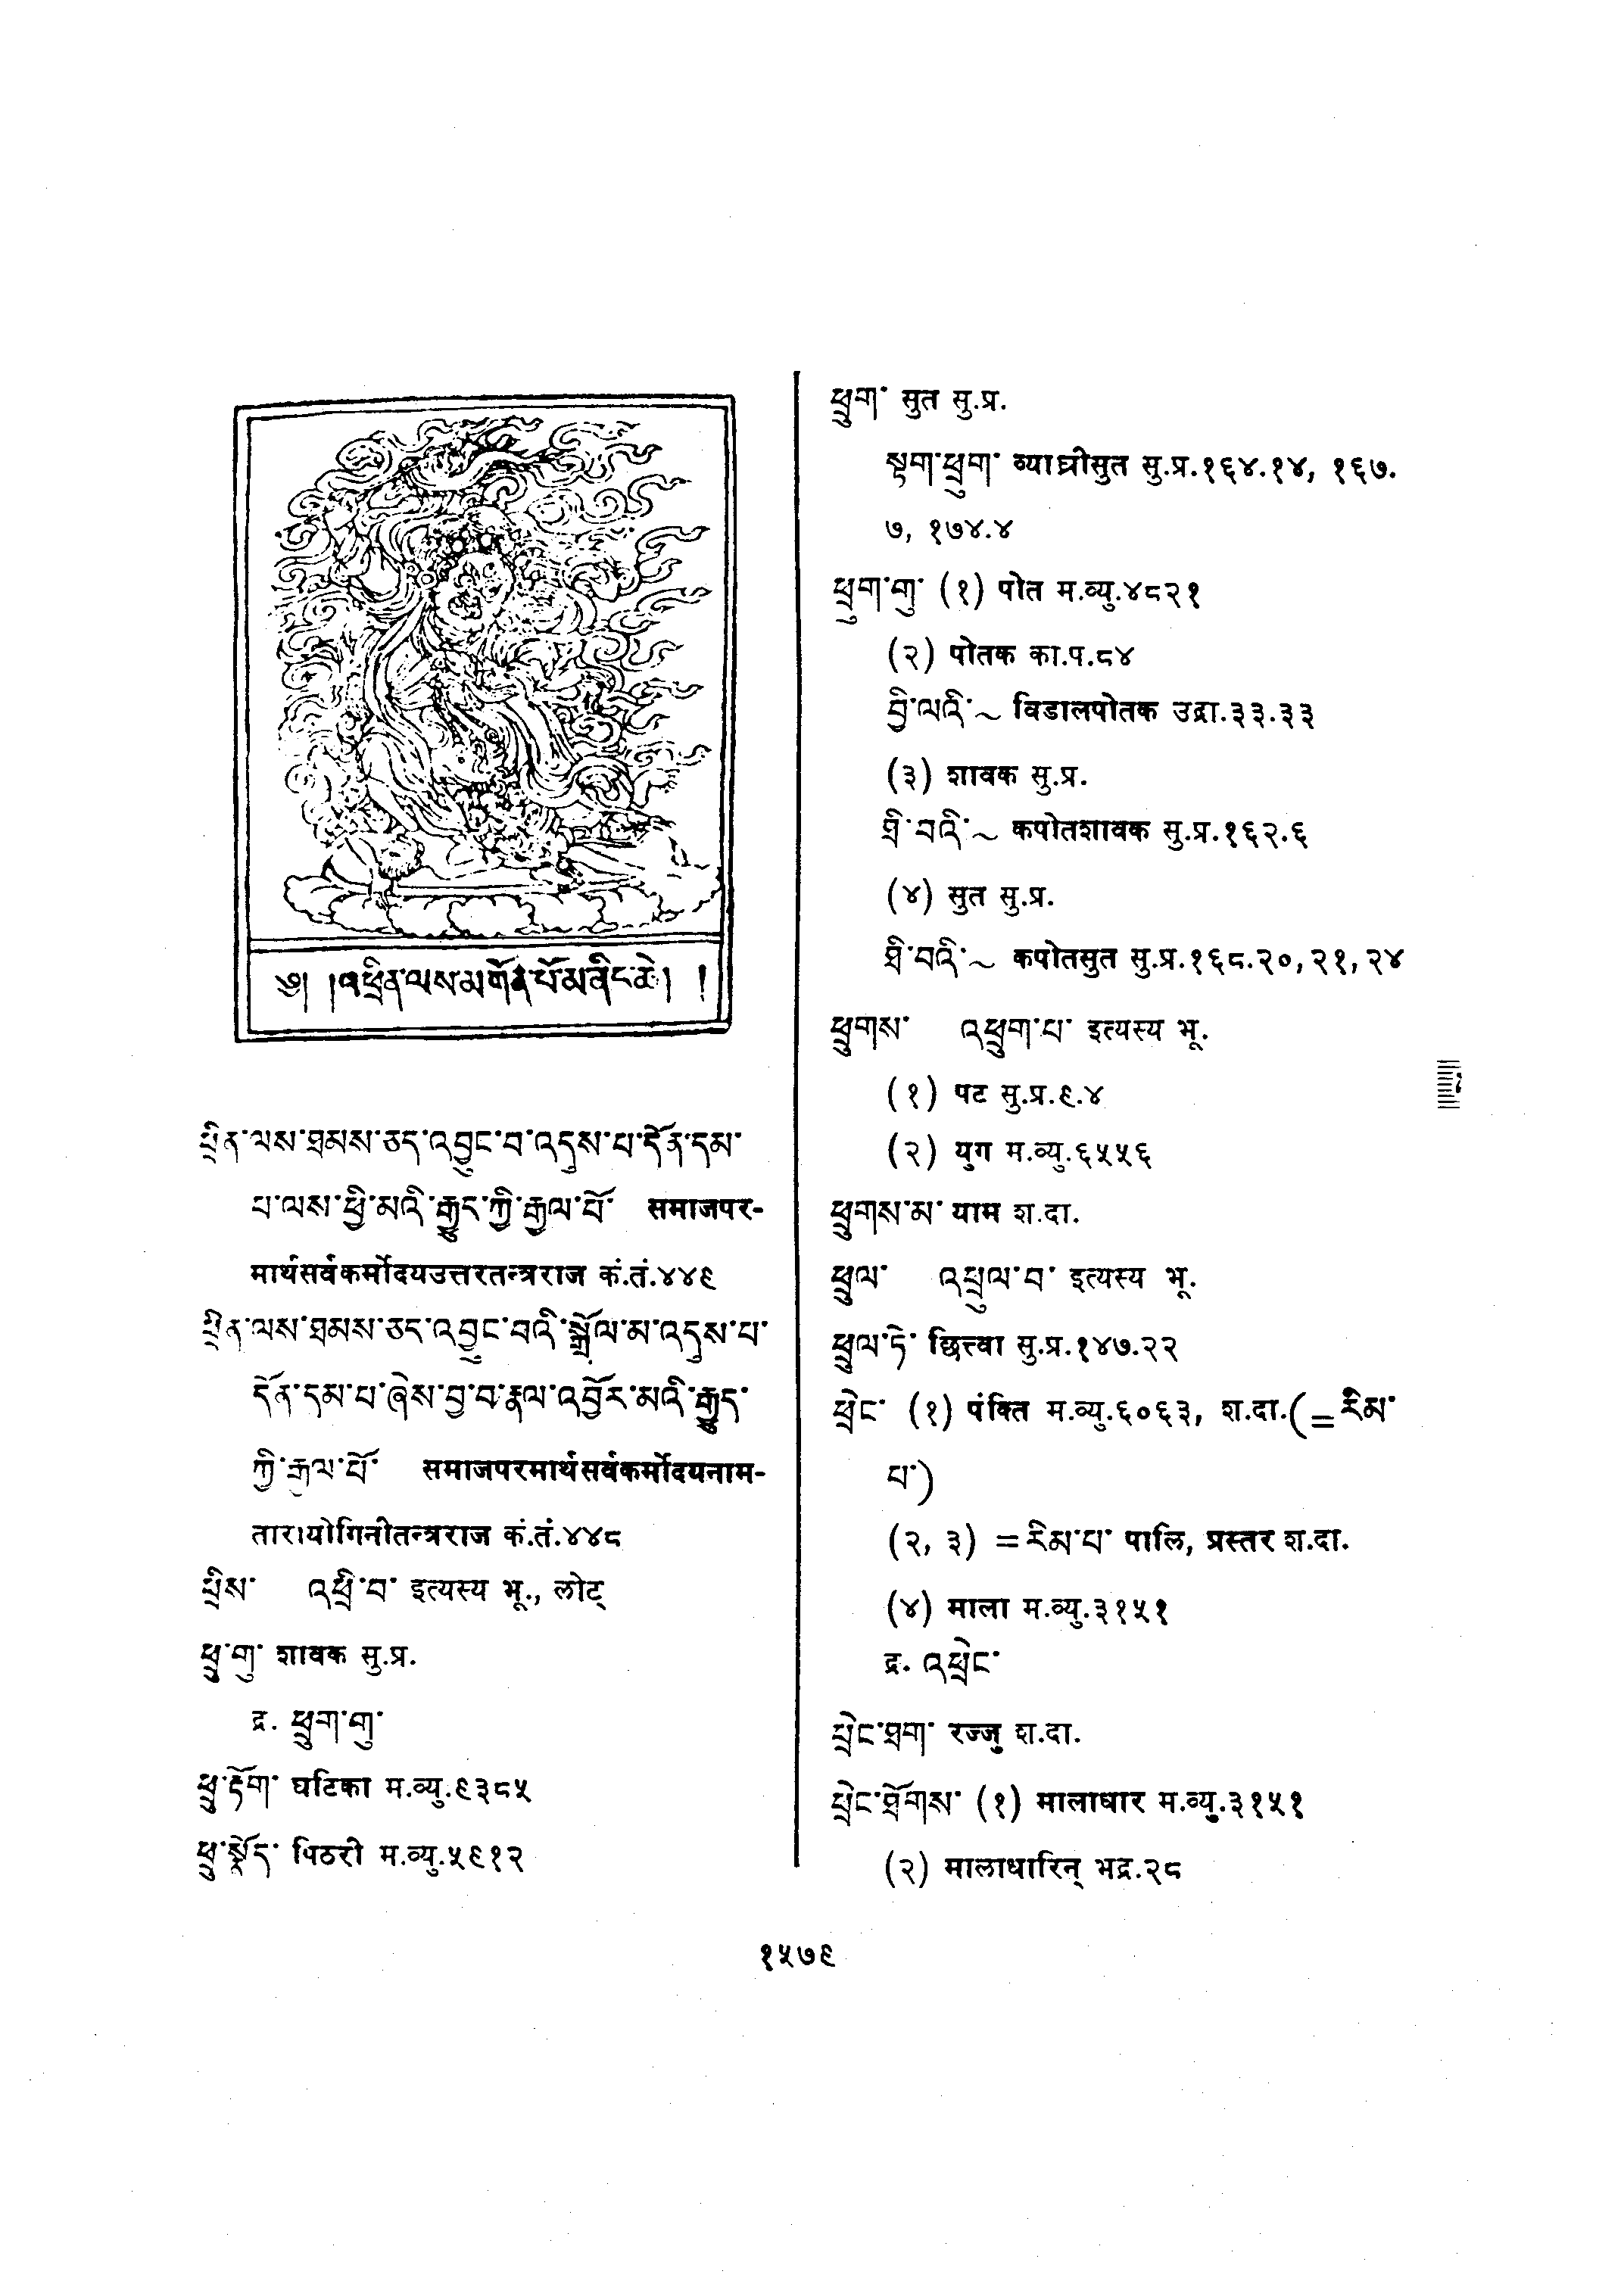 ༄། །འཕྲིན་ལས་མགོན་པོ་མནིང་ཆེ། །
ཕྲིན་ལས་ཐམས་ཅད་འབྱུང་བ་འདུས་པ་དོན་དམ་
པ་ལས་ཕྱི་མའི་རྒྱུད་ཀྱི་རྒྱལ་པོ་ समाजपर-
मार्थसर्वकर्मोदयउत्तरतन्त्रराज कं.तं.४४९
ཕྲིན་ལས་ཐམས་ཅད་འབྱུང་བའི་སྒྲོལ་མ་འདུས་པ་
དོན་དམ་པ་ཞེས་བྱ་བ་རྣལ་འབྱོར་མའི་རྒྱུད་
ཀྱི་རྒྱལ་པོ་ समाजपरमार्थसर्वकर्मोदयनाम-
तारायोगिनीतन्त्रराज कं.तं.४४८
ཕྲིས་ འཕྲི་བ་ इत्यस्य भू., लोट्
ཕྲུ་གུ་ शावक सु.प्र.
द्र. ཕྲུག་གུ་
ཕྲུ་རྡོག་ घटिका म.व्यु.९३८५
ཕྲུ་སྣོད་ पिठरी म.व्यु.५९१२
ཕྲུག་ सुत सु.प्र.
སྟག་ཕྲུག་ व्याघ्रीसुत सु.प्र.१६४.१४, १६७.
७, १७४.४
ཕྲུག་གུ་ (१) पोत म.व्यु.४८२१
(२) पोतक का.प.८४
བྱི་ལའི་~ विडालपोतक उद्रा.३३.३३
(३) शावक सु.प्र.
ཐི་བའི་~ कपोतशावक सु.प्र.१६२.६
(४) सुत सु.प्र.
ཐི་བའི་~ कपोतसुत सु.प्र.१६८.२०, २१, २४
ཕྲུགས་ འཕྲུག་པ་ इत्यस्य भू.
(१) पट सु.प्र.९.४
(२) युग म.व्यु.६५५६
ཕྲུགས་མ་ याम श.दा.
ཕྲུལ་ འཕྲུལ་བ་ इत्यस्य भू.
ཕྲུལ་ཏེ་ छित्त्वा सु.प्र.१४७.२२
ཕྲེང་ (१) पंक्ति म.व्यु.६०६३, श.दा.(=རིམ་
པ་)
(२, ३) =རིམ་པ་ पालि, प्रस्तर श.दा.
(४) माला म.व्यु.३१५१
द्र. འཕྲེང་
ཕྲེང་ཐག་ रज्जु श.दा.
ཕྲེང་ཐོགས་ (१) मालाधार म.व्यु.३१५१
(२) मालाधारिन् भद्र.२८
१५७९